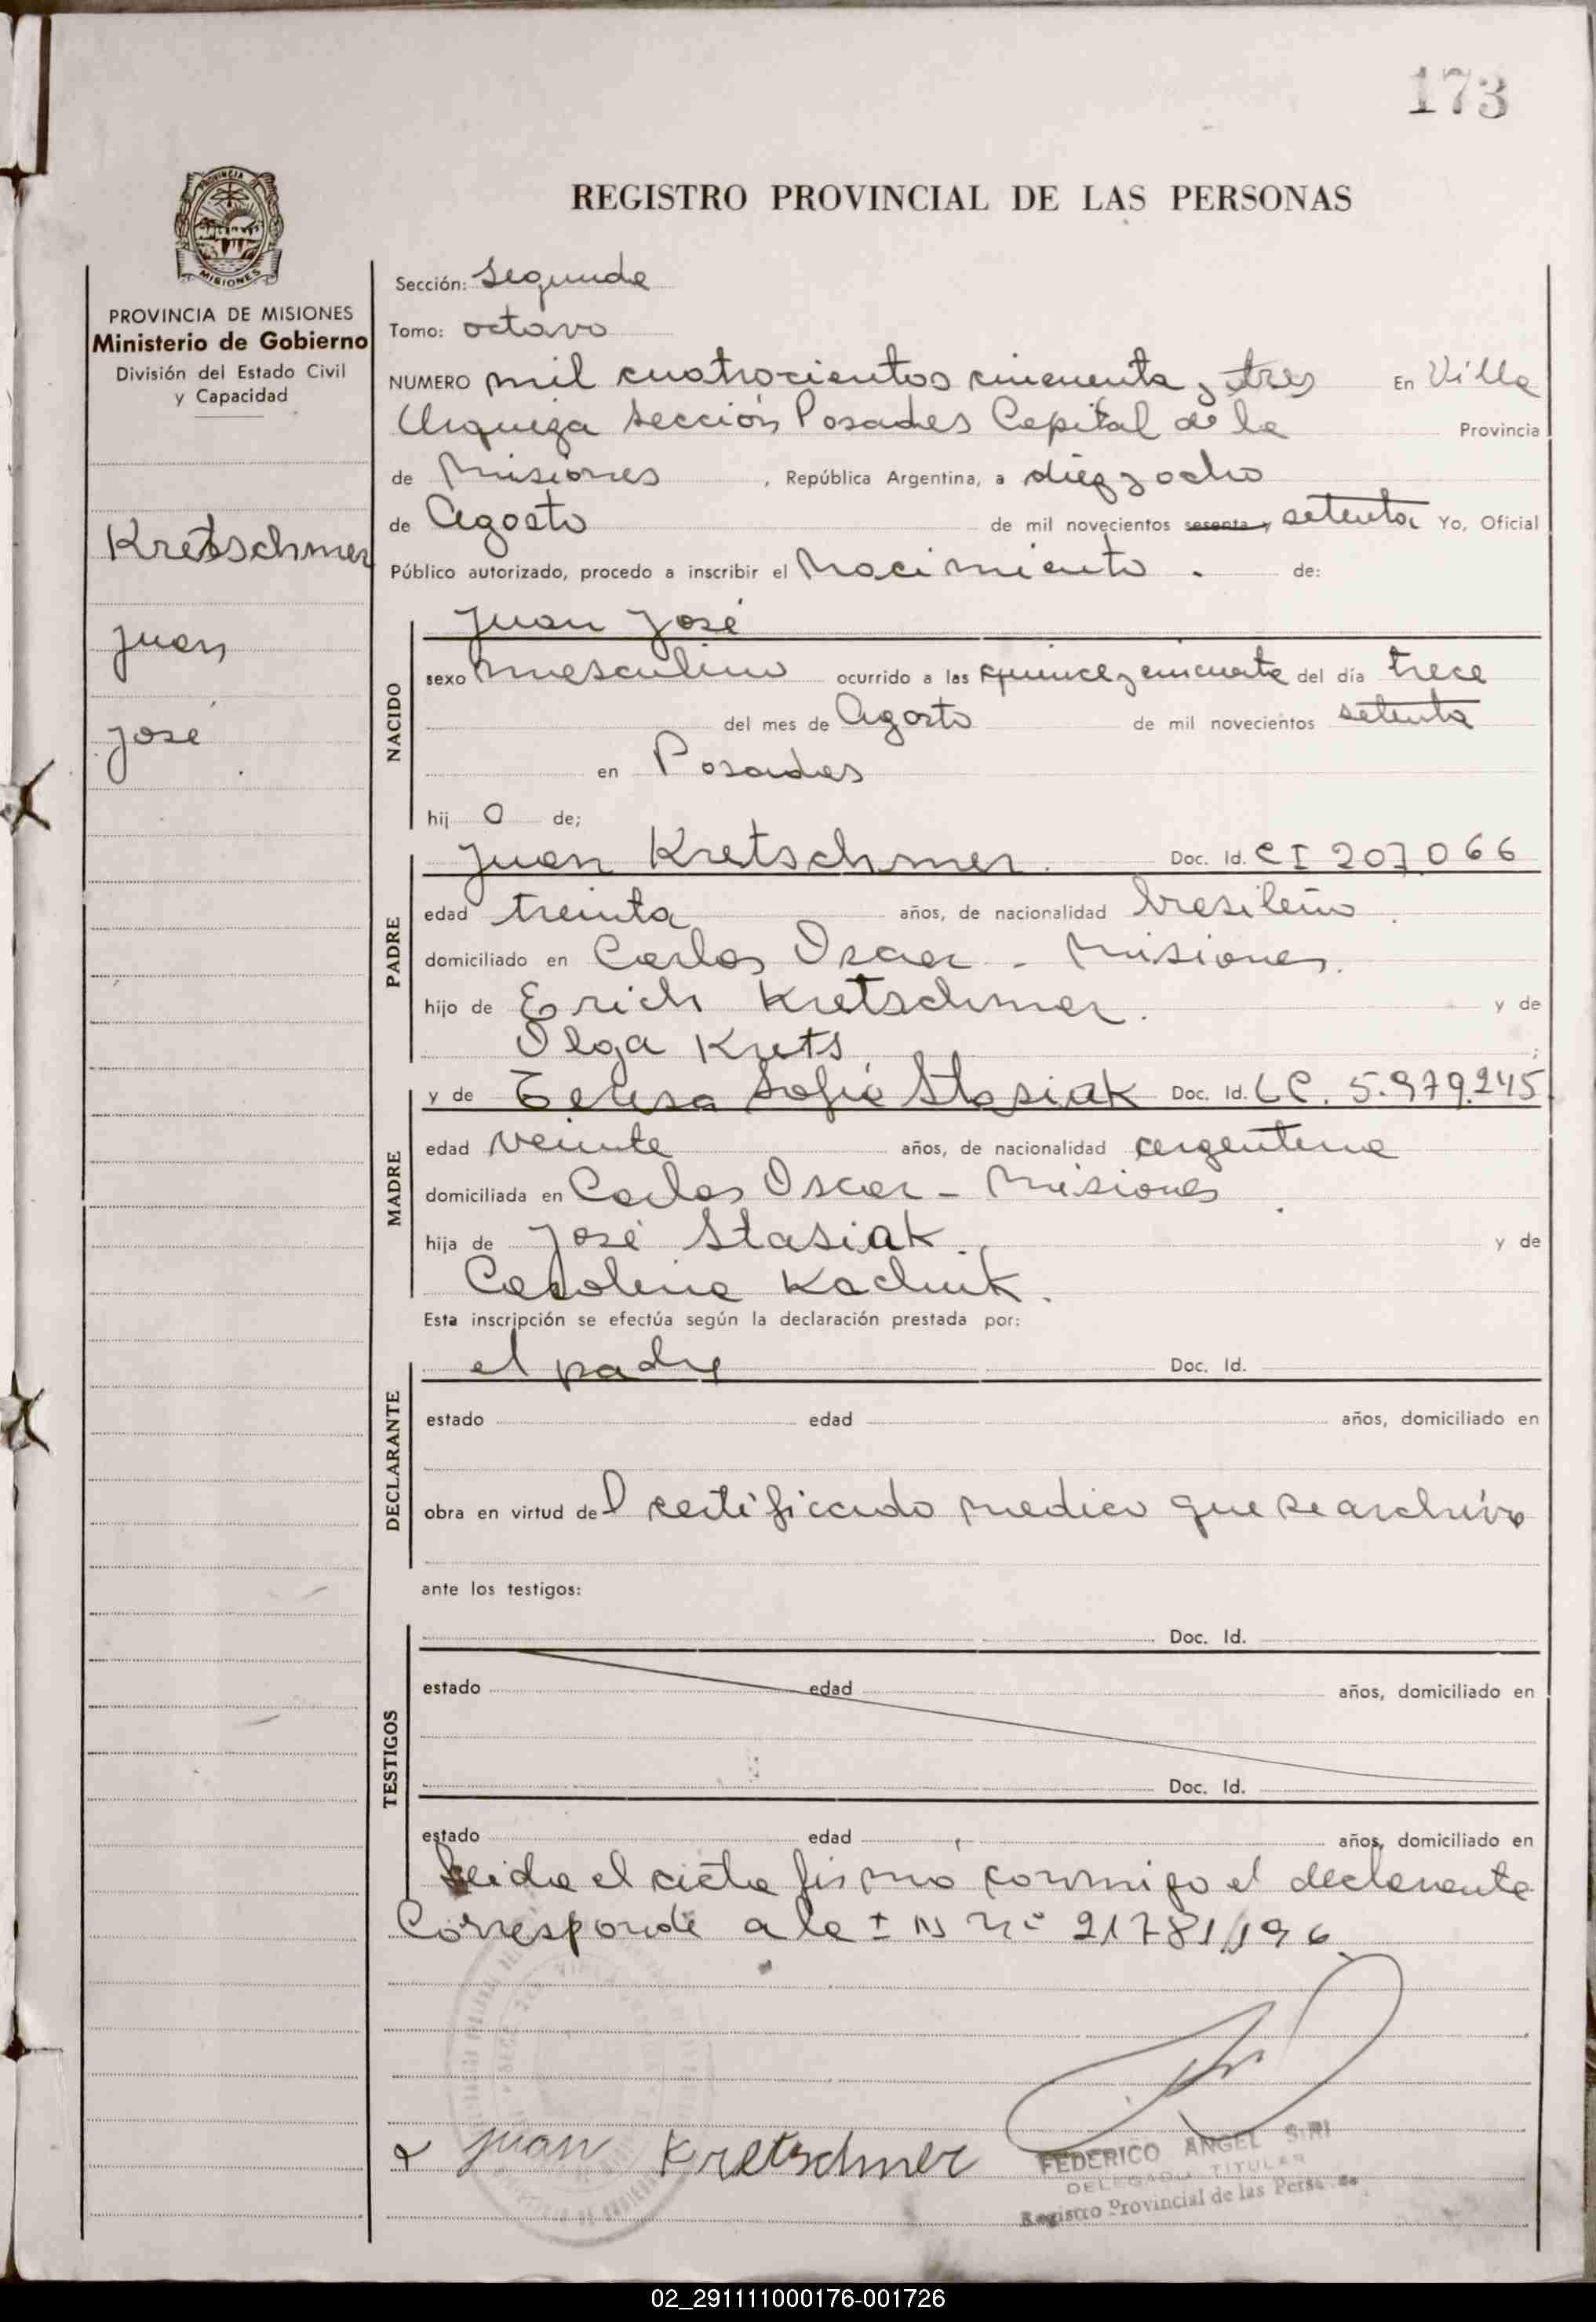 173
REGISTRO PROVINCIAL DE LAS PERSONAS
PROVINCIA
MISIONES
PROVINCIA DE MISIONES
Ministerio de Gobierno
División del Estado Civil
y Capacidad
Kretschmer
Juan
José
Sección: Segunda
Tomo: octavo
NUMERO mil cuatrocientos cincuenta y tres En Villa
Urquiza Sección Posadas Capital de la Provincia
de Misiones , República Argentina, a diez y ocho
de Agosto de mil novecientos sesenta y setenta Yo, Oficial
Público autorizado, procedo a inscribir el Nacimiento . de:
NACIDO
Juan José
sexo masculino ocurrido a las quince y cincuenta del día trece
del mes de Agosto de mil novecientos setenta
en Posadas
hij o de;
PADRE
Juan Kretschmer. Doc. Id. CI 207.066
edad treinta años, de nacionalidad brasileño.
domiciliado en Carlos Oscar - Misiones.
hijo de Erich Kretschmer. y de
Olga Krets ;
MADRE
y de Teresa Sofia Stasiak Doc. Id. LC. 5.979.245
edad veinte años, de nacionalidad argentina
domiciliada en Carlos Oscar - Misiones
hija de José Stasiak. y de
Carolina Kachuk.
Esta inscripción se efectúa según la declaración prestada por:
DECLARANTE
el padre Doc. Id.
estado edad años, domiciliado en
obra en virtud de l certificado medico que se archiva
ante los testigos:
TESTIGOS
Doc. Id.
estado edad años, domiciliado en
Doc. Id.
estado edad años, domiciliado en
Leida el acta firmó conmigo el declarante
Corresponde a la nº 21781,196
Juan Kretschmer
FEDERICO ANGEL SIRI
DELEGADO TITULAR
Registro Provincial de las Personas
02_291111000176-001726